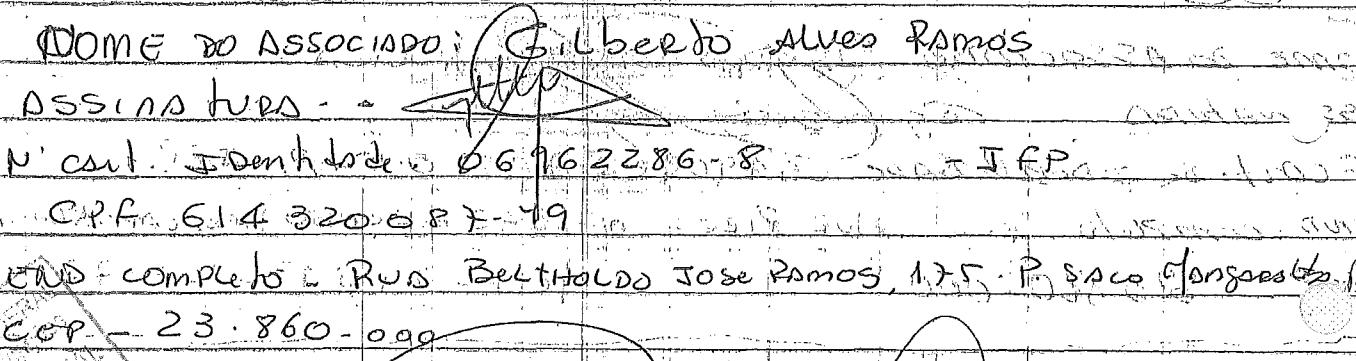 NOME DO ASSOCIADO: Gilberto Alves Ramos
ASSINATURA - -
Nº cart. Identidade. 06962286-8 - IFP
CPF. 614 320.087-49
END - completo - RUA BELTHOLDO JOSE RAMOS, 175. P. SACO
CEP - 23.860-000